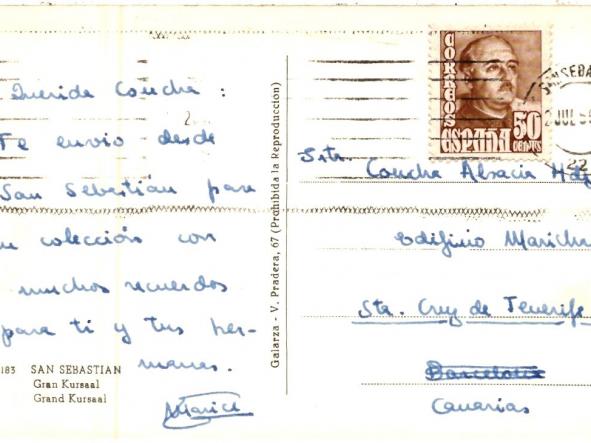 Querida Concha :
Te envio desde
San Sebastian para
tu colección con
muchos recuerdos
para ti y tus her-
manas.
183 SAN SEBASTIAN
Gran Kursaal
Grand Kursaal
Galarza - V. Pradera, 67 (Prohibida la Reproduccion)
CORREOS
ESPAÑA 50
CENTS
SAN SEBA
2 JUL 5
22
Srta. Concha Alsacia
Edificio
Sta. Cruz de Tenerife
Barcelona
Canarias